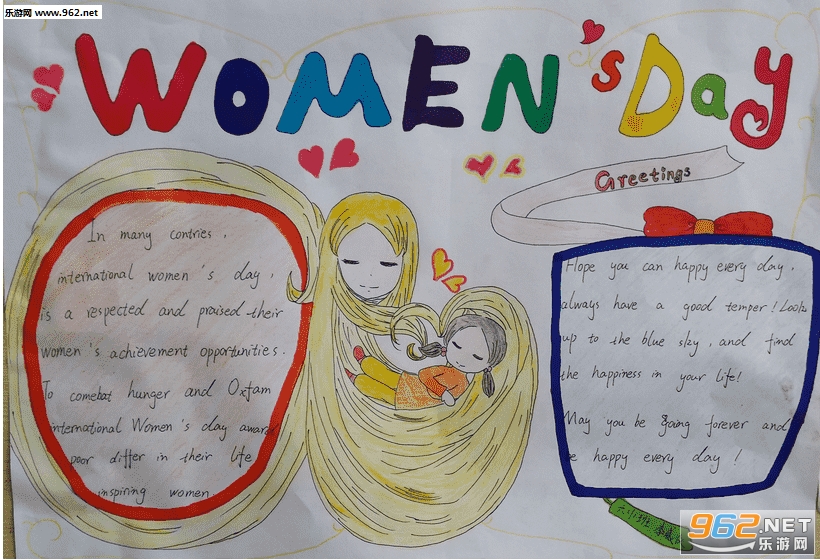 乐游网 www.962.net
WOMEN'S Day
Greetings
In many contries,
international women's day,
is a respected and praised their
women's achievement opportunities.
To comebat hunger and Oxfam
international Women's day award
poor differ in their life
inspiring women
Hope you can happy every day,
always have a good temper! Look
up to the blue sky, and find
the happiness in your life!
May you be going forever and
be happy every day!
六小班
962.NET
乐游网